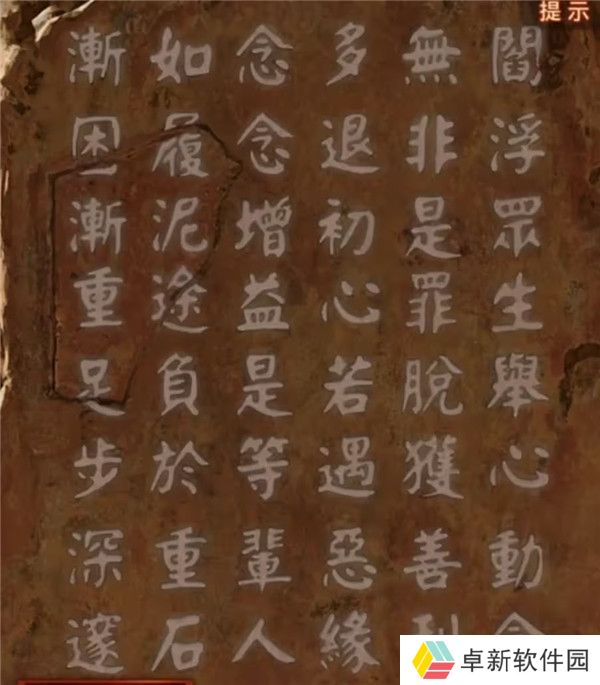 提示
閻浮眾生舉心動
無非是罪脫獲善
多退初心若遇惡緣
念念增益是等輩人
如履泥途負於重石
漸困漸重足步深邃
卓新软件园